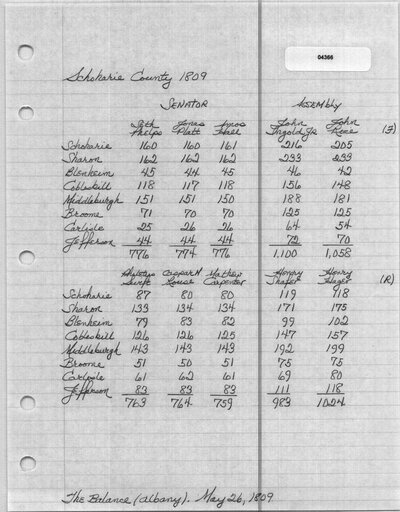 04366
Schoharie County 1809
SENATOR ASSEMBLY
Seth Phelps Jonas Platt Amos Hall John Ingold Jr. John Rice (F)
Schoharie 160 160 161 216 205
Sharon 162 162 162 233 233
Blenheim 45 44 45 46 42
Cobleskill 118 117 118 156 148
Middleburgh 151 151 150 188 181
Broome 71 70 70 125 125
Carlisle 25 26 26 64 54
Jefferson 44 44 44 72 70
776 774 776 1,100 1,058
Swift Caspar M Rouse Mathew Carpenter Henry Shafer Henry Hager (R)
Schoharie 87 80 80 119 118
Sharon 133 134 134 171 175
Blenheim 79 83 82 99 102
Cobleskill 126 126 125 147 157
Middleburgh 143 143 143 192 199
Broome 51 50 51 75 75
Carlisle 61 62 61 69 80
Jefferson 83 83 83 111 118
763 764 759 983 1024
The Balance (Albany). May 26, 1809